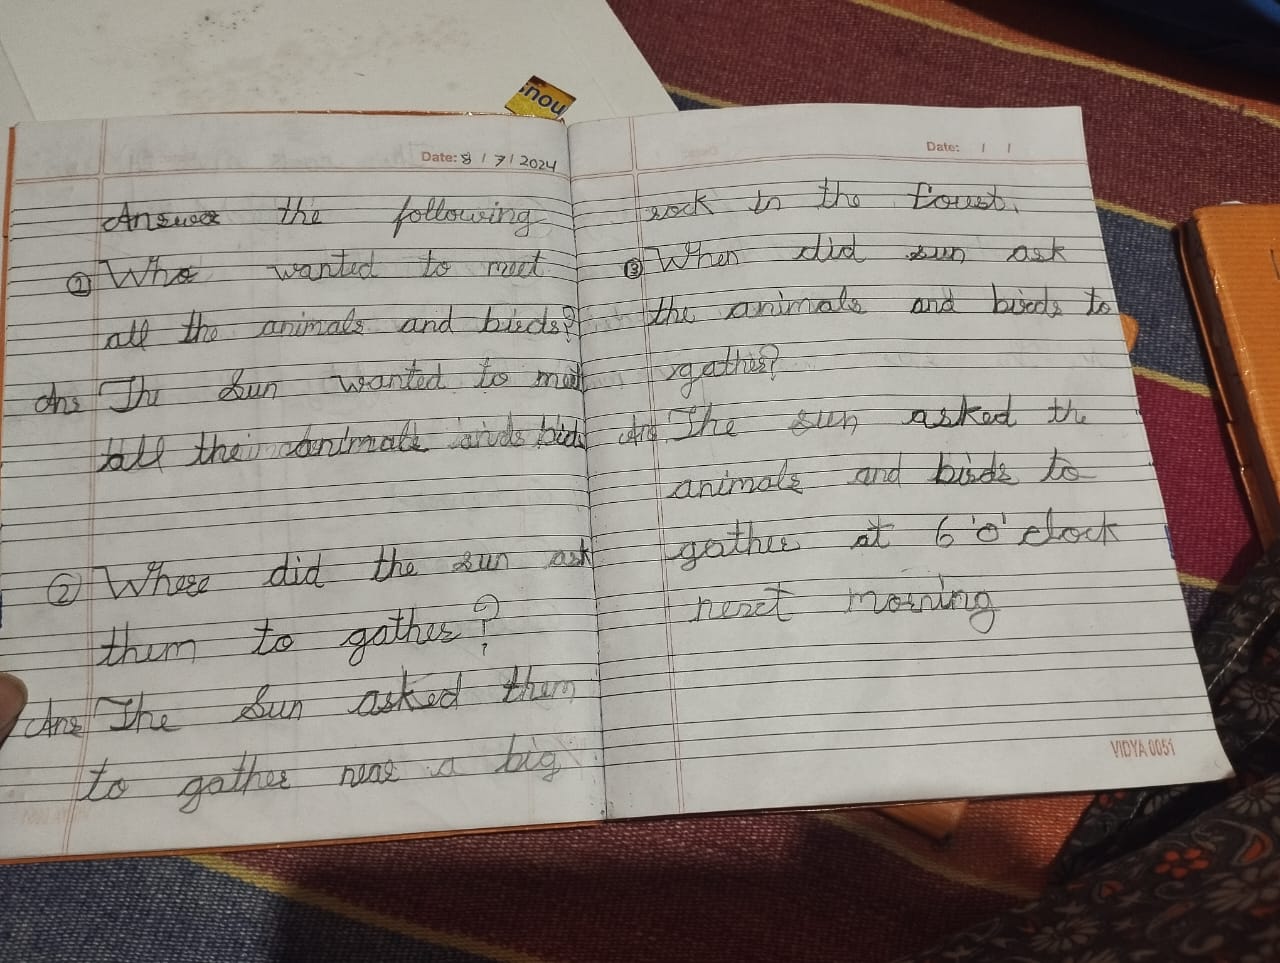 nou
Date: 8 / 7 / 2024
Answer the following
① Who wanted to meet
all the animals and birds?
Ans The Sun wanted to meet
all the animals and birds
② Where did the sun ask
them to gather?
Ans The Sun asked them
to gather near a big
Date: / /
rock in the
③ When did sun ask
the animals and birds to
gather?
Ans The sun asked the
animals and birds to
gather at 6 'o' clock
next morning
VIDYA 0051